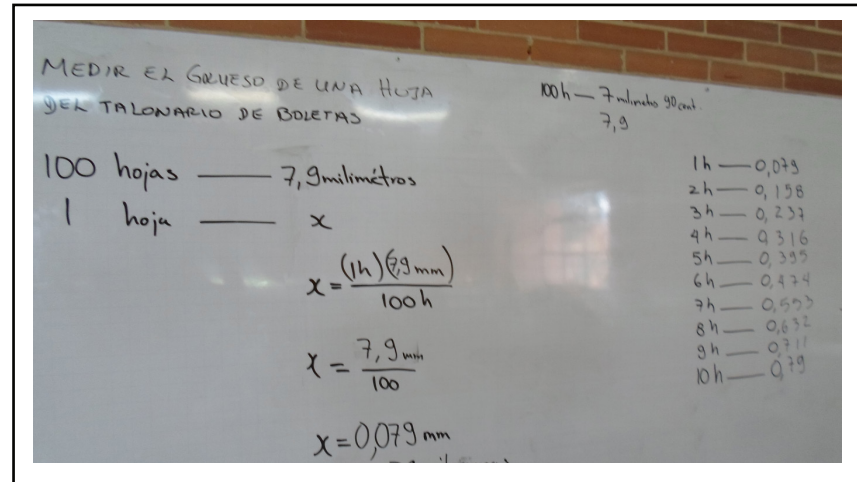 MEDIR EL GRUESO DE UNA HOJA
DEL TALONARIO DE BOLETAS
100 hojas — 7,9 milimétros
1 hoja — x
x = (1h)(7,9 mm) / 100 h
x = 7,9 mm / 100
x = 0,079 mm
100 h — 7 milimetro 90 cent.
7,9
1h — 0,079
2h — 0,158
3h — 0,237
4h — 0,316
5h — 0,395
6h — 0,474
7h — 0,553
8h — 0,632
9h — 0,711
10h — 0,79